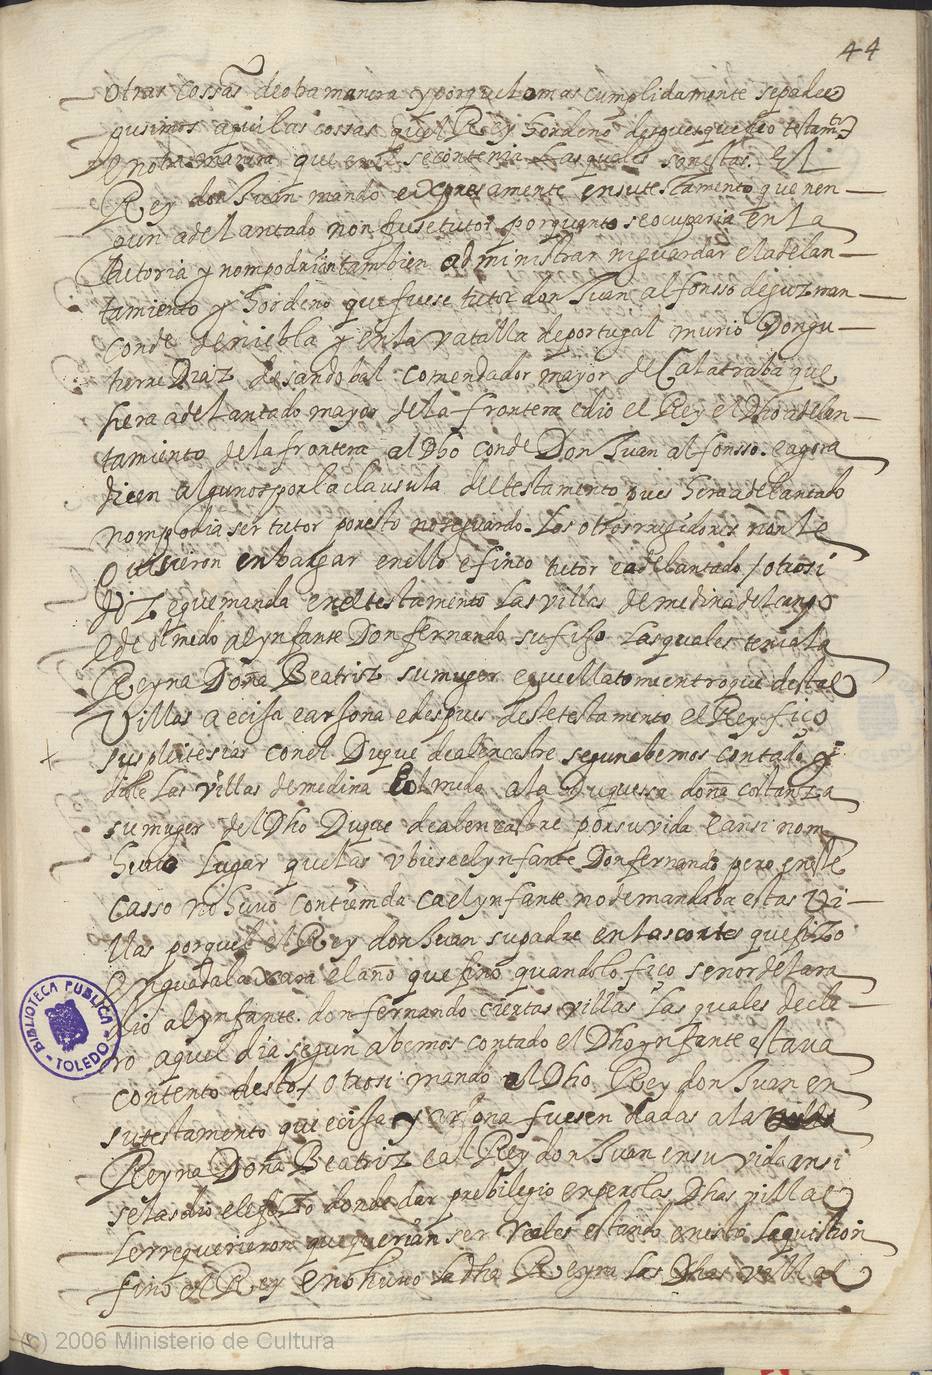 44
otras cossas de otra manera y porque lo mas cumplidamente sepades
pusimos aqui las cossas quel Rey hordeno despues que fiço testamto
en otra manera que en el se contenia las quales son estas. El
Rey don Juan mando expresamente en su testamento que nen-
gun adelantado non fuse tutor porquanto se ocuparia en la
tutoria y nom podrian tambien administrar ni guardar el adelan-
tamiento y hordeno que fuese tutor don Juan alfonsso de guzman
conde de niebla y en la vatalla de portugal murio Don gu-
tierre Diaz de sandobal comendador mayor de Calatraba que
hera adelantado mayor de la frontera e dio el Rey el Dho adelan-
tamiento de la frontera al Dho conde Don Juan alfonsso. e agora
dicen algunos por la clausula del testamento pues hera adelantado
nom podia ser tutor por esto no se guardo. Los otros regidores non le
quisieron enbargar en ello e finco tutor e adelantado / otrosi
Diz e que manda en el testamento las villas de medina del canpo
e de olmedo al ynfante Don fernando su fijo las quales tenia la
Reyna Doña Beatriz su muger e que ella tomi entroque destas
Villas a ecija e arjona e despues deste testamento el Rey fiço
sus pleitesias con el Duque de alencastre segun abemos contado y
diole las villas de medina e olmedo a la Duquessa doña costanza
su muger del Dho Duque de alencastre por su vida e ansi nom
huuo lugar que las vbiese el ynfante Don fernando pero en este
casso no huuo contienda ca el ynfante no demandaba estas Vi-
llas porque el Rey don Juan su padre en las cortes que fizo
en guadalaxara el año que fino quando lo fiço señor de lara
dio al ynfante don fernando ciertas villas las quales decla-
ro aquel dia segun abemos contado el Dho ynfante estaua
contento desto / otrosi mando el Dho Rey don Juan en
su testamento que ecija y arjona fuesen dadas a la
Reyna Doña Beatriz e al Rey don Juan en su vida ansi
se las dio e le fizo dende dar prebilegio en pero las Dhas villas
le rrequerieron que querian ser reales estando en esta la quistion
fino el Rey e no huuo la dha Reyna las Dhas villas
BIBLIOTECA PUBLICA - TOLEDO -
(c) 2006 Ministerio de Cultura